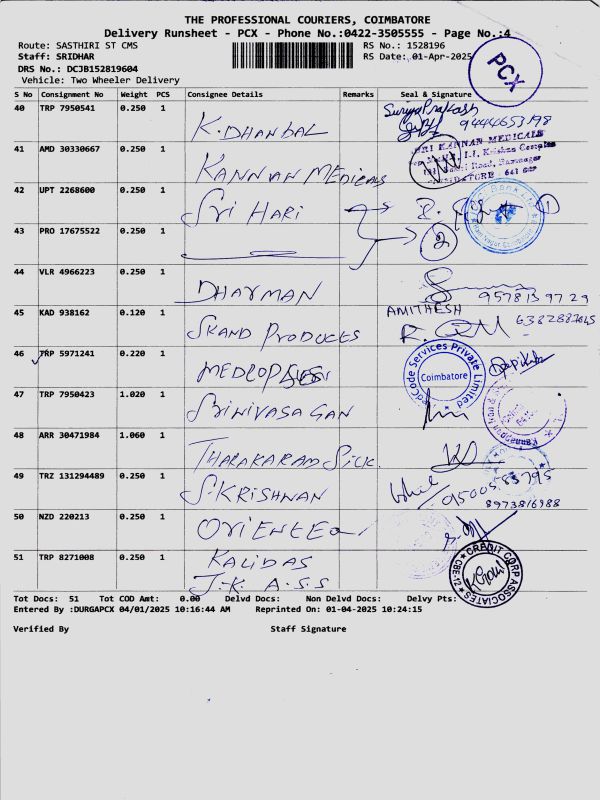 THE PROFESSIONAL COURIERS, COIMBATORE
Delivery Runsheet - PCX - Phone No.:0422-3505555 - Page No.:4
Route: SASTHIRI ST CMS
RS No.: 1528196
Staff: SRIDHAR
RS Date: 01-Apr-2025
DRS No.: DCJB152819604
Vehicle: Two Wheeler Delivery
PCX
S No Consignment No Weight PCS Consignee Details Remarks Seal & Signature
40 TRP 7950541 0.250 1 K.DHANBAL Surya Prakash
9444653198
41 AMD 30330667 0.250 1 KANNAN MEDICALS SRI KANNAN MEDICALS
42 UPT 2268600 0.250 1 SRI HARI 1
43 PRO 17675522 0.250 1 2
44 VLR 4966223 0.250 1 DHAYMAN 9578139729
45 KAD 938162 0.120 1 SKAND PRODUCTS AMITHESH
6382887045
46 TRP 5971241 0.220 1 Code Services Private Limited
Coimbatore
47 TRP 7950423 1.020 1 SRINIVASA GAN
48 ARR 30471984 1.060 1 THARAKARAM SILK.
49 TRZ 131294489 0.250 1 S.KRISHNAN
8973816988
50 NZD 220213 0.250 1
51 TRP 8271008 0.250 1 KALIDAS
J.K. A.S.S
CREDIT CORP ASSOCIATES
CBE-12
Tot Docs: 51 Tot COD Amt: 0.00 Delvd Docs: Non Delvd Docs: Delvy Pts:
Entered By :DURGAPCX 04/01/2025 10:16:44 AM Reprinted On: 01-04-2025 10:24:15
Verified By Staff Signature